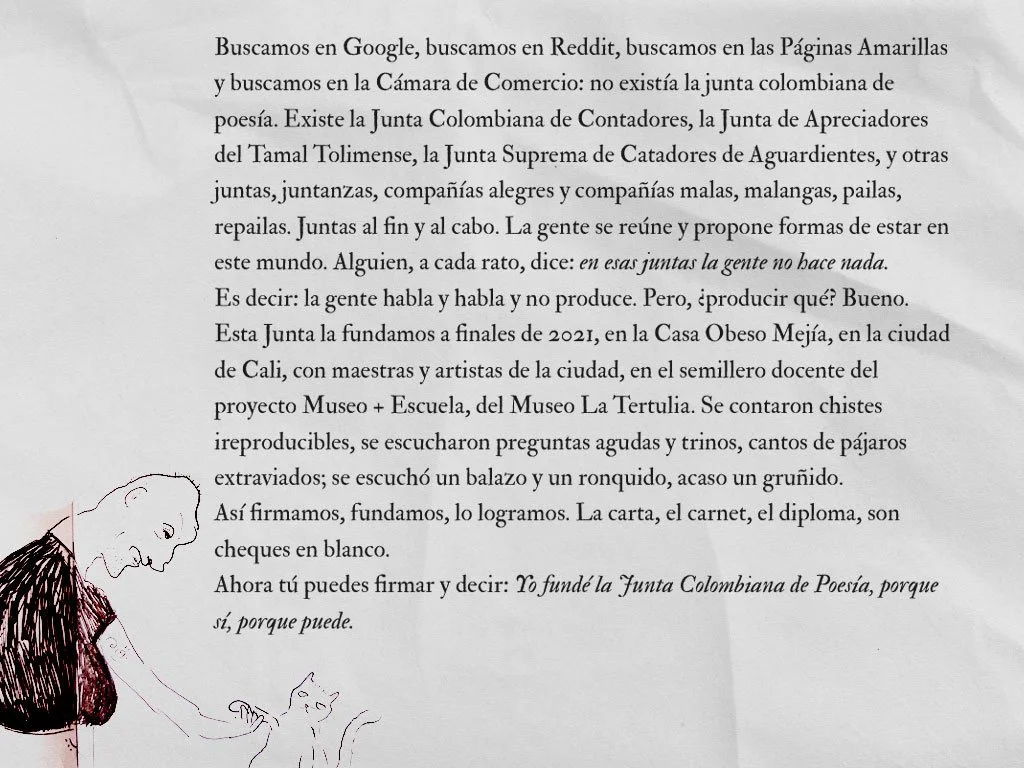 Buscamos en Google, buscamos en Reddit, buscamos en las Páginas Amarillas
y buscamos en la Cámara de Comercio: no existía la junta colombiana de
poesía. Existe la Junta Colombiana de Contadores, la Junta de Apreciadores
del Tamal Tolimense, la Junta Suprema de Catadores de Aguardientes, y otras
juntas, juntanzas, compañías alegres y compañías malas, malangas, pailas,
repailas. Juntas al fin y al cabo. La gente se reúne y propone formas de estar en
este mundo. Alguien, a cada rato, dice: en esas juntas la gente no hace nada.
Es decir: la gente habla y habla y no produce. Pero, ¿producir qué? Bueno.
Esta Junta la fundamos a finales de 2021, en la Casa Obeso Mejía, en la ciudad
de Cali, con maestras y artistas de la ciudad, en el semillero docente del
proyecto Museo + Escuela, del Museo La Tertulia. Se contaron chistes
ireproducibles, se escucharon preguntas agudas y trinos, cantos de pájaros
extraviados; se escuchó un balazo y un ronquido, acaso un gruñido.
Así firmamos, fundamos, lo logramos. La carta, el carnet, el diploma, son
cheques en blanco.
Ahora tú puedes firmar y decir: Yo fundé la Junta Colombiana de Poesía, porque
sí, porque puede.